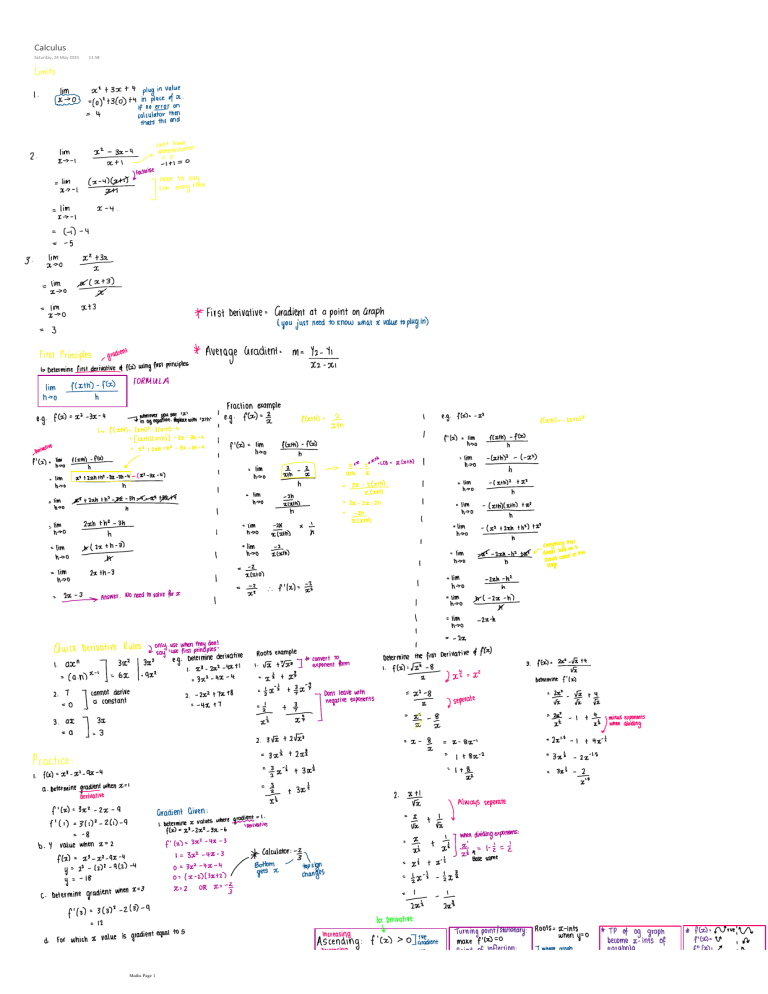 Calculus
Saturday, 24 May 2025 11:58
Limits
1. lim x→0 x² + 3x + 4
= (0)² + 3(0) + 4
= 4
plug in value
in place of x.
If no error on
calculator then
thats the ans
2. lim x→-1 x² - 3x - 4 / x + 1
-1+1 = 0
factorise
= lim x→-1 (x-4)(x+1) / x+1
= lim x→-1 x - 4
= (-1) - 4
= -5
3. lim x→0 x² + 3x / x
= lim x→0 x(x+3) / x
= lim x→0 x+3
= 3
* First Derivative = Gradient at a point on Graph
(you just need to know what x value to plug in)
* Average Gradient = m = Y2 - Y1 / x2 - x1
First Principles → gradient
↳ Determine first derivative of f(x) using first principles
lim h→0 f(x+h) - f(x) / h FORMULA
e.g. f(x) = x² - 3x - 4
wherever you see 'x'
in og equation. Replace with 'x+h'
derivative
f'(x) = lim h→0 f(x+h) - f(x) / h
= lim h→0 x² + 2xh + h² - 3x - 3h - 4 - (x² - 3x - 4) / h
= lim h→0 x² + 2xh + h² - 3x - 3h - 4 - x² + 3x + 4 / h
= lim h→0 2xh + h² - 3h / h
= lim h→0 h(2x + h - 3) / h
= lim h→0 2x + h - 3
= 2x - 3 → Answer. No need to solve for x
Fraction example
e.g. f(x) = 2/x
f(x+h) = 2 / x+h
f'(x) = lim h→0 f(x+h) - f(x) / h
= lim h→0 2/x+h - 2/x / h
= lim h→0 -2h / x(x+h) / h
= lim h→0 -2h / x(x+h) × 1/h
= lim h→0 -2 / x(x+h)
= -2 / x(x+0)
= -2 / x² ∴ f'(x) = -2 / x²
LCD = x(x+h)
= 2x - 2(x+h) / x(x+h)
= 2x - 2x - 2h
= -2h / x(x+h)
e.g. f(x) = -x²
f(x+h) = -(x+h)²
f'(x) = lim h→0 f(x+h) - f(x) / h
= lim h→0 -(x+h)² - (-x²) / h
= lim h→0 -(x+h)² + x² / h
= lim h→0 -(x+h)(x+h) + x² / h
= lim h→0 -(x² + 2xh + h²) + x² / h
= lim h→0 -x² - 2xh - h² + x² / h
= lim h→0 -2xh - h² / h
= lim h→0 h(-2x - h) / h
= lim h→0 -2x - h
= -2x
Quick Derivative Rules
only use when they dont
say "use first principles"
1. axⁿ
= (a.n) xⁿ⁻¹
3x² = 6x
3x³ = 9x²
2. 7
= 0
cannot derive
a constant
3. ax
= a
3x
= 3
e.g. Determine derivative
1. x³ - 2x² - 4x + 1
= 3x² - 4x - 4
2. -2x² + 7x + 8
= -4x + 7
Roots example
* convert to
exponent form
Dont leave with
negative exponents
2. 3√x + 2√x³
= 3x^½ + 2x^3/2
= 3/2 x^-½ + 3x^½
= 3 / 2x^½ + 3x^½
Determine the first Derivative of f(x)
seperate
= x² - 8 / x
= x²/x - 8/x
= x - 8/x = x - 8x⁻¹
= 1 + 8x⁻²
= 1 + 8/x²
2. x+1 / √x
Always seperate
= x/√x + 1/√x
= x / x^½ + 1 / x^½
when dividing exponents:
Base same
= x^½ + x^-½
= ½x^-½ - ½x^-3/2
= 1 / 2x^½ - 1 / 2x^3/2
3. f(x) = 2x² - √x + 4 / √x
Determine f'(x)
= 2x²/√x - √x/√x + 4/√x
= 2x²/x^½ - 1 + 4/x^½
minus exponents
when dividing
= 2x^1.5 - 1 + 4x^-½
= 3x^½ - 2x^-1.5
= 3x^½ - 2 / x^1.5
Practice:
1. f(x) = x³ - x² - 9x - 4
a. Determine gradient when x = 1
Derivative
f'(x) = 3x² - 2x - 9
f'(1) = 3(1)² - 2(1) - 9
= -8
b. Y value when x = 2
f(x) = x³ - x² - 9x - 4
y = 2³ - (2)² - 9(2) - 4
y = -18
c. Determine gradient when x = 3
f'(3) = 3(3)² - 2(3) - 9
= 12
d. For which x value is gradient equal to 5
Gradient Given:
1. Determine x values where gradient = 1.
→ derivative
f(x) = x³ - 2x² - 3x - 6
f'(x) = 3x² - 4x - 3
1 = 3x² - 4x - 3
0 = 3x² - 4x - 4
0 = (x-2)(3x+2)
x = 2 OR x = -2/3
* Calculator: -2/3
Bottom
gets x
top sign
changes
1st Derivative
Increasing
Ascending: f'(x) > 0 ] +ve
Gradient
Turning point/stationary:
make f'(x) = 0
Point of inflection:
Roots = x-ints
when y=0
* TP of og graph
become x-ints of
parabola
* f(x) =
f'(x) =
f''(x) =
Maths Page 1